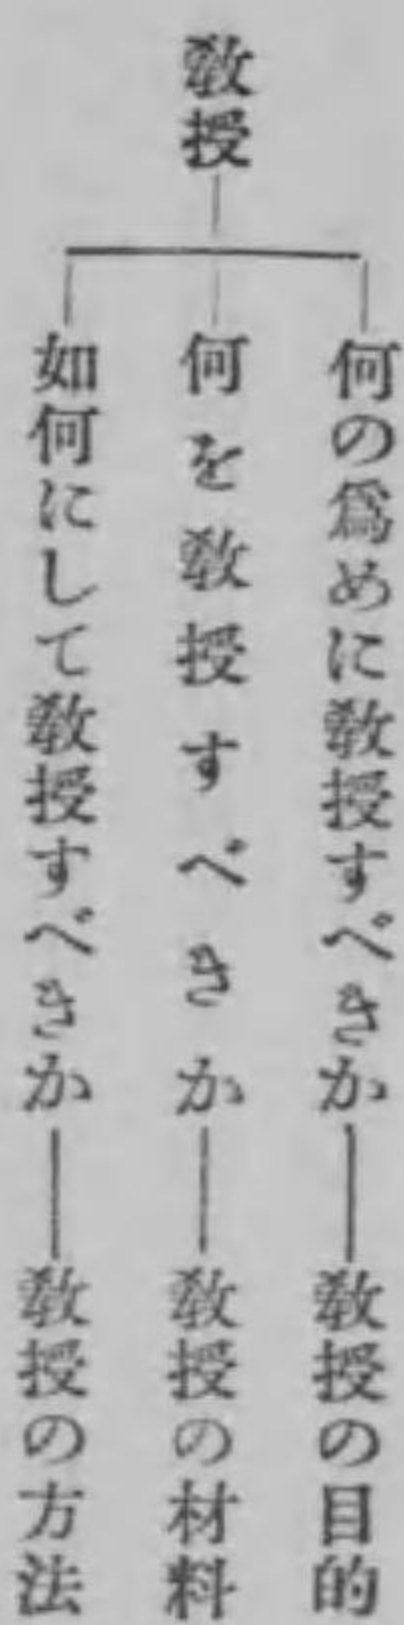 敎授
何の爲めに敎授すべきか――敎授の目的
何を敎授すべきか――敎授の材料
如何にして敎授すべきか――敎授の方法